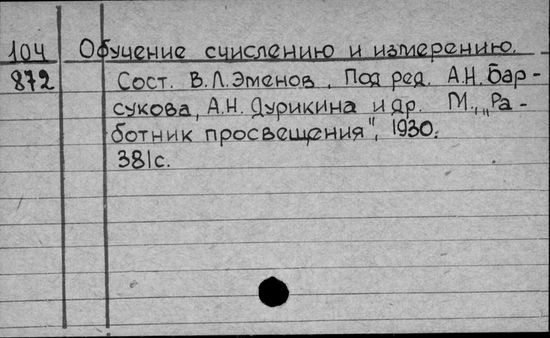 104 Обучение счислению и измерению.
872 Сост. В.Л. Эменов. Под ред. А.Н. Бар-
сукова, А.Н. Дурикина и др. М., „Ра-
ботник просвещения", 1930.
381с.